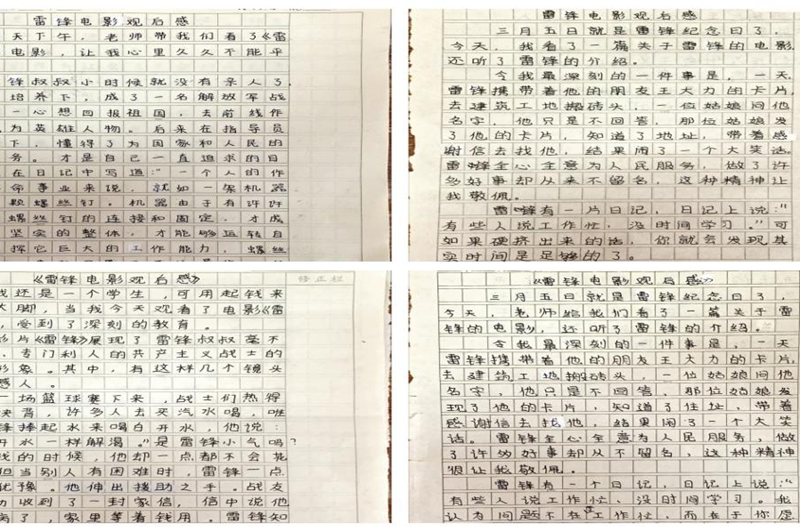 雷锋电影观后感
天下午，老师带我们看了《雷
电影，让我心里久久不能平
锋叔叔小时候就没有亲人了，
培养下，成了一名解放军战
一心想四报祖国，去前线作
为英雄人物。后来在指导员
下，懂得了为国家和人民的
务。才是自己一直追求的目
在日记中写道：“一个人的作
命事业来说，就如一架机器
颗螺丝钉。机器由于有许许
螺丝钉的连接和固定，才成
坚实的整体，才能够运转自
挥它巨大的工作能力，螺丝
雷锋电影观后感
三月五日就是雷锋纪念日了，
今天，我看了一篇关于雷锋的电影，
还听了雷锋的介绍。
令我最深刻的一件事是，一天，
雷锋携带着他的朋友王大力的卡片，
去建筑工地搬砖头，一位姑娘问他
名字，他只是不回答，那位姑娘发
了他的卡片，知道了地址，带着感
谢信去找他，结果闹了一个大笑话。
雷锋全心全意为人民服务，做了许
多好事却从来不留名，这种精神让
我敬佩。
雷锋有一片日记，日记上说：“
有些人说工作忙，没时间学习。”可
如果硬挤出来的话，你就会发现其
实时间是足够的了。
《雷锋电影观后感》
修正栏
我还是一个学生，可用起钱来
大脚，当我今天观看了电影《雷
，受到了深刻的教育。
影片《雷锋》展现了雷锋叔叔毫不
、专门利人的共产主义战士的
形象。其中，有这样几个镜头
感人。
一场篮球赛下来，战士们热得
浃背，许多人去买汽水喝，唯
锋捧起水来喝白开水，他说：
开水一样解渴。”是雷锋小气吗？
钱的时候，他却一点都不会花
但当别人有困难时，雷锋一点
犹豫。他伸出援助之手。战友
力收到了一封家信，信中说他
病了，家里等着钱用。雷锋知
《雷锋电影观后感》
三月五日就是雷锋纪念日了，
今天，老师给我们看了一篇关于雷
锋的电影，还听了雷锋的介绍。
令我最深刻的一件事是，一天
雷锋携带着他的朋友王大力的卡片，
去建筑工地搬砖头，一位姑娘问他
名字，他只是不回答，那位姑娘发
现了他的卡片，知道了住址，带着
感谢信去找他，结果闹了一个大笑
话。雷锋全心全意为人民服务，做
了许多好事却从不留名，这种精神
很让我敬佩。
雷锋有一个日记，日记上说：“
有些人说工作忙、没时间学习。我
认为问题不在工作忙，而在于你愿